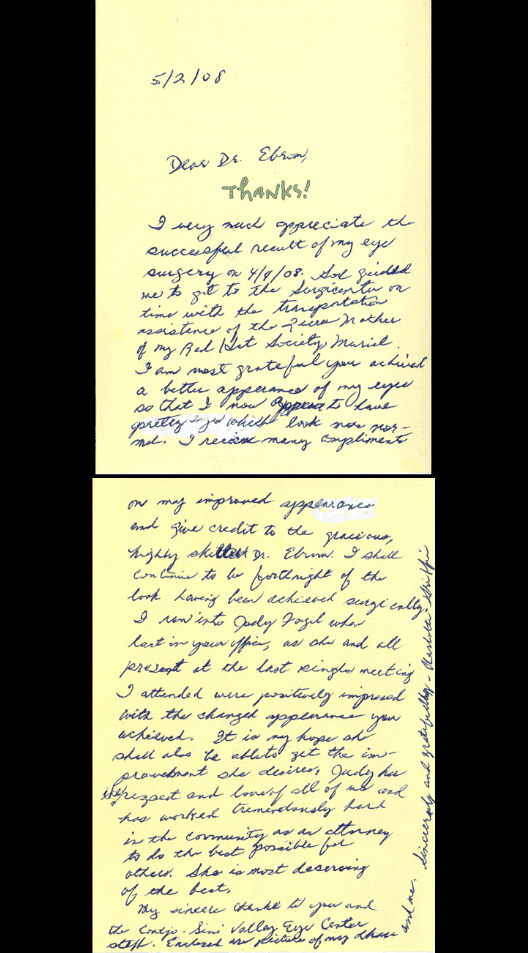 5/2/08
Dear Dr. Ebrom,
THANKS!
I very much appreciate the
successful result of my eye
surgery on 4/9/08. God guided
me to get to the Surgicenter on
time with the transportation
assistance of the Queen Mother
of my Red Hat Society Muriel.
I am most grateful you achieved
a better apperance of my eyes
so that I now appear to have
pretty eyes which look now nor-
mal. I receive many compliments
on my improved appearance
and give credit to the gracious,
highly skilled Dr. Ebrom. I shall
continue to be forthright of the
look having been achieved surgically.
I ran into Judy Fogel when
last in your office, as she and all
present at the last singles meeting
I attended were positively impressed
with the changed appearance you
achieved. It is my hope she
shall also be able to get the im-
provement she desires. Judy has
the respect and love of all of us and
has worked tremendously hard
in the community as an attorney
to do the best possible for
others. She is most deserving
of the best.
My sincere thanks to you and
the Conejo-Simi Valley Eye Center
staff. Enclosed are picture of my
and me. Sincerely and gratefully,